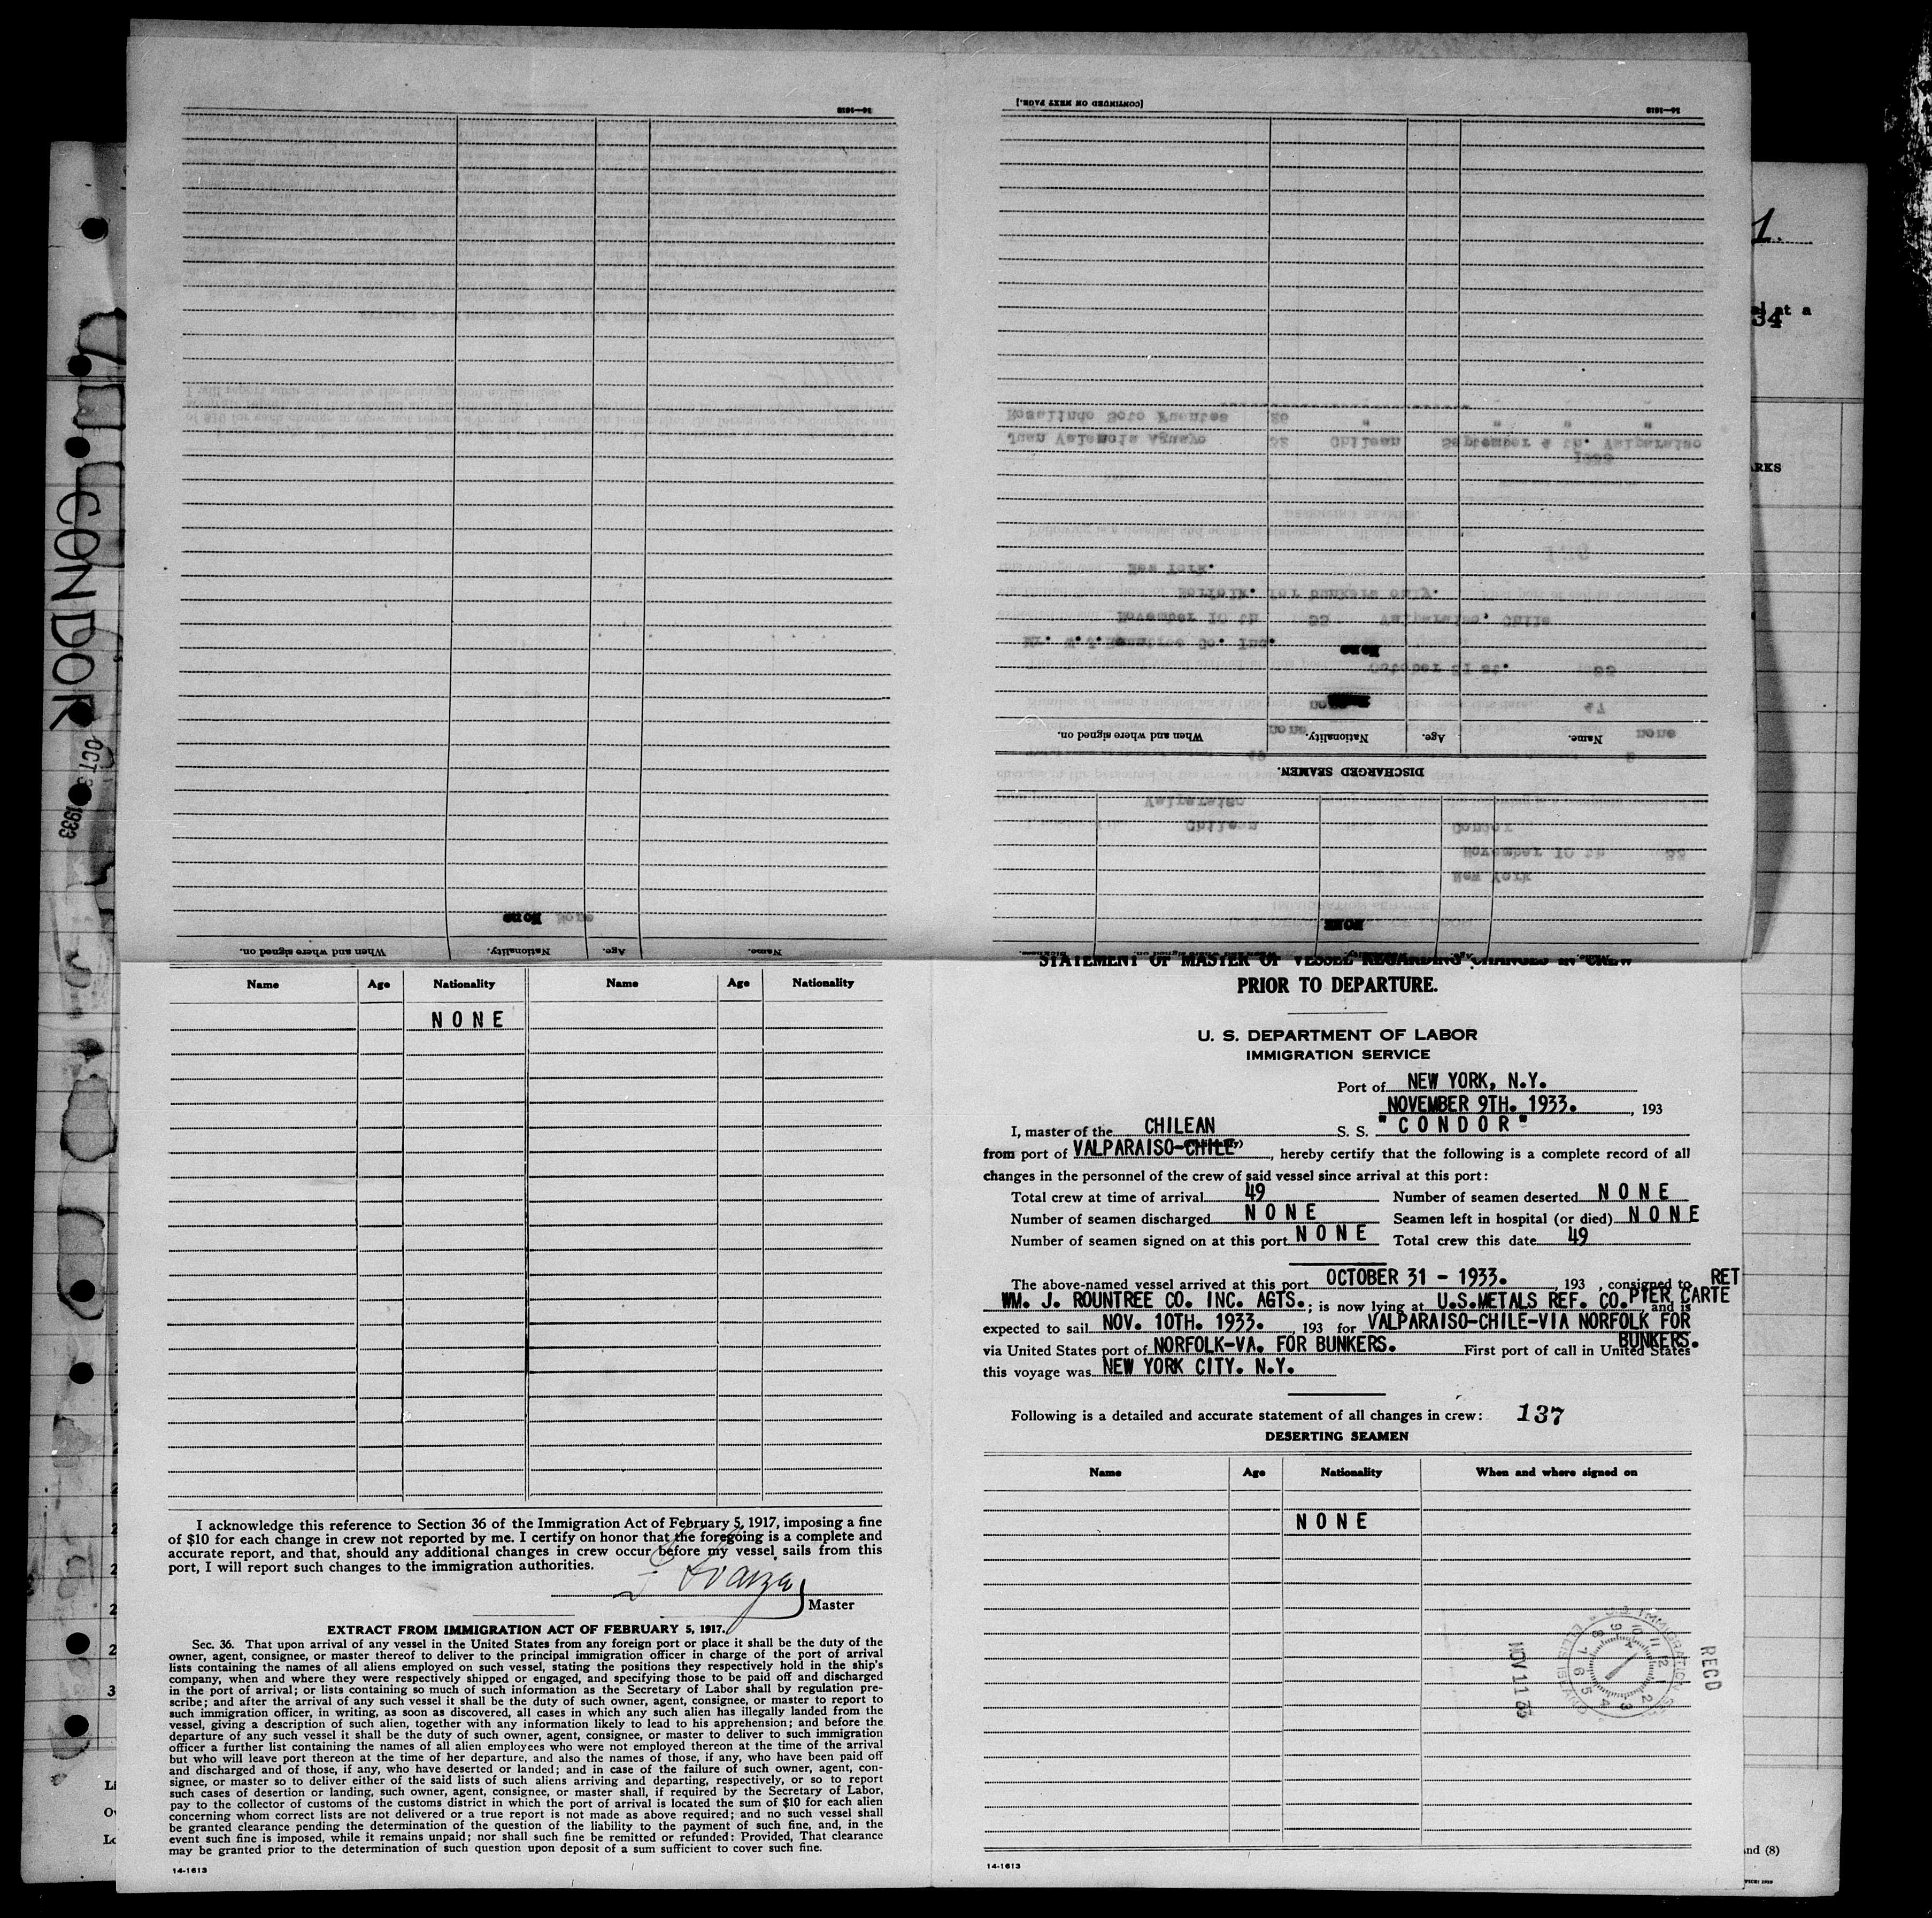 16—1613
[CONTINUED ON NEXT PAGE.]
16—1613
1.
34
at a
ARKS
CONDOR
OCT 3 1933
Rosalindo Soto Fuentes 26 " " " "
Juan Valencia Aguayo 32 Chilean September 4 th. Valparaiso
1933
New York.
Norfolk. for bunkers only.
November 10 th 33 Valparaiso, Chile
Mr. W.J.Rountree Co. Inc.
None
October 31 st. 33
47
none
none
When and where signed on. Nationality. Age. Name.
none
DISCHARGED SEAMEN.
Valparaiso
Chilean Condor
November 10 th 33
New York
None None
NONE
When and where signed on. Nationality. Age. Name.
Name Age Nationality Name Age Nationality
NONE
I acknowledge this reference to Section 36 of the Immigration Act of February 5, 1917, imposing a fine
of $10 for each change in crew not reported by me. I certify on honor that the foregoing is a complete and
accurate report, and that, should any additional changes in crew occur before my vessel sails from this
port, I will report such changes to the immigration authorities.
Master
EXTRACT FROM IMMIGRATION ACT OF FEBRUARY 5, 1917.
Sec. 36. That upon arrival of any vessel in the United States from any foreign port or place it shall be the duty of the
owner, agent, consignee, or master thereof to deliver to the principal immigration officer in charge of the port of arrival
lists containing the names of all aliens employed on such vessel, stating the positions they respectively hold in the ship's
company, when and where they were respectively shipped or engaged, and specifying those to be paid off and discharged
in the port of arrival; or lists containing so much of such information as the Secretary of Labor shall by regulation pre-
scribe; and after the arrival of any such vessel it shall be the duty of such owner, agent, consignee, or master to report to
such immigration officer, in writing, as soon as discovered, all cases in which any such alien has illegally landed from the
vessel, giving a description of such alien, together with any information likely to lead to his apprehension; and before the
departure of any such vessel it shall be the duty of such owner, agent, consignee, or master to deliver to such immigration
officer a further list containing the names of all alien employees who were not employed thereon at the time of the arrival
but who will leave port thereon at the time of her departure, and also the names of those, if any, who have been paid off
and discharged and of those, if any, who have deserted or landed; and in case of the failure of such owner, agent, con-
signee, or master so to deliver either of the said lists of such aliens arriving and departing, respectively, or so to report
such cases of desertion or landing, such owner, agent, consignee, or master shall, if required by the Secretary of Labor,
pay to the collector of customs of the customs district in which the port of arrival is located the sum of $10 for each alien
concerning whom correct lists are not delivered or a true report is not made as above required; and no such vessel shall
be granted clearance pending the determination of the question of the liability to the payment of such fine, and, in the
event such fine is imposed, while it remains unpaid; nor shall such fine be remitted or refunded: Provided, That clearance
may be granted prior to the determination of such question upon deposit of a sum sufficient to cover such fine.
14-1613
STATEMENT OF MASTER OF VESSEL REGARDING CHANGES IN CREW
PRIOR TO DEPARTURE.
U. S. DEPARTMENT OF LABOR
IMMIGRATION SERVICE
Port of NEW YORK, N.Y.
NOVEMBER 9TH. 1933. , 193
I, master of the CHILEAN S. S. "CONDOR"
from port of VALPARAISO-CHILE , hereby certify that the following is a complete record of all
changes in the personnel of the crew of said vessel since arrival at this port:
Total crew at time of arrival 49 Number of seamen deserted NONE
Number of seamen discharged NONE Seamen left in hospital (or died) NONE
Number of seamen signed on at this port NONE Total crew this date 49
The above-named vessel arrived at this port OCTOBER 31 - 1933. , 193 , consigned to RET
WM. J. ROUNTREE CO. INC. AGTS. ; is now lying at U.S.METALS REF. CO. PIER, CARTE and is
expected to sail NOV. 10TH. 1933. , 193 for VALPARAISO-CHILE-VIA NORFOLK FOR
BUNKERS.
via United States port of NORFOLK-VA. FOR BUNKERS. First port of call in United States
this voyage was NEW YORK CITY. N.Y.
Following is a detailed and accurate statement of all changes in crew: 137
DESERTING SEAMEN
Name Age Nationality When and where signed on
NONE
U.S. IMMIGRATION
REC'D
NOV 11 33
14-1613
and (8)